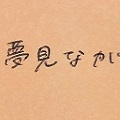 夢見なが